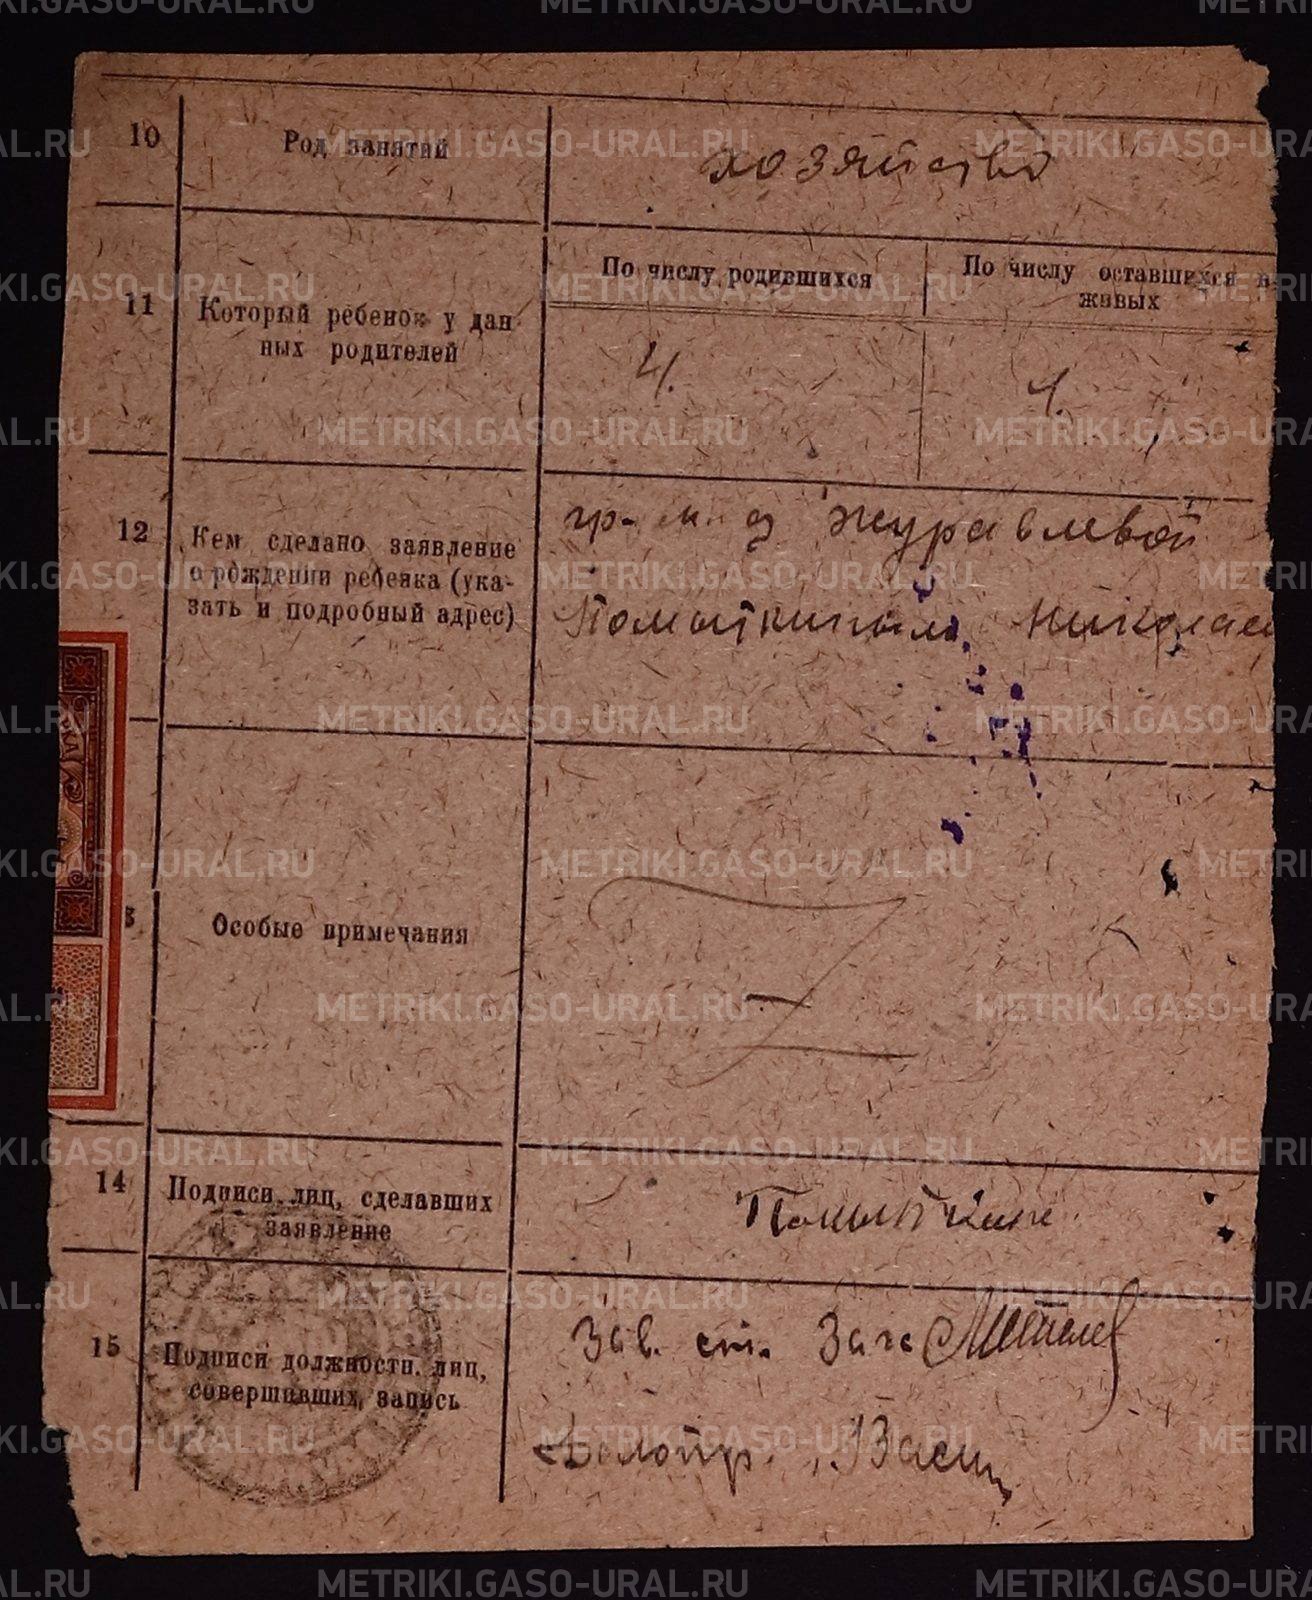 10 Род занятий хозяйство
11 Который ребенок у дан-
ных родителей
По числу родившихся
По числу оставшихся в
живых
4.
1.
12 Кем сделано заявление
о рождении ребенка (ука-
зать и подробный адрес)
гр-м. д Журавлевой
Помыткиным Николаем
Особые примечания
14 Подписи лиц, сделавших
заявление
Помыткин
15 Подписи должности. лиц,
совершивших запись
Зав. ст. Загс
Делопр. Васи
METRIKI.GASO-URAL.RU